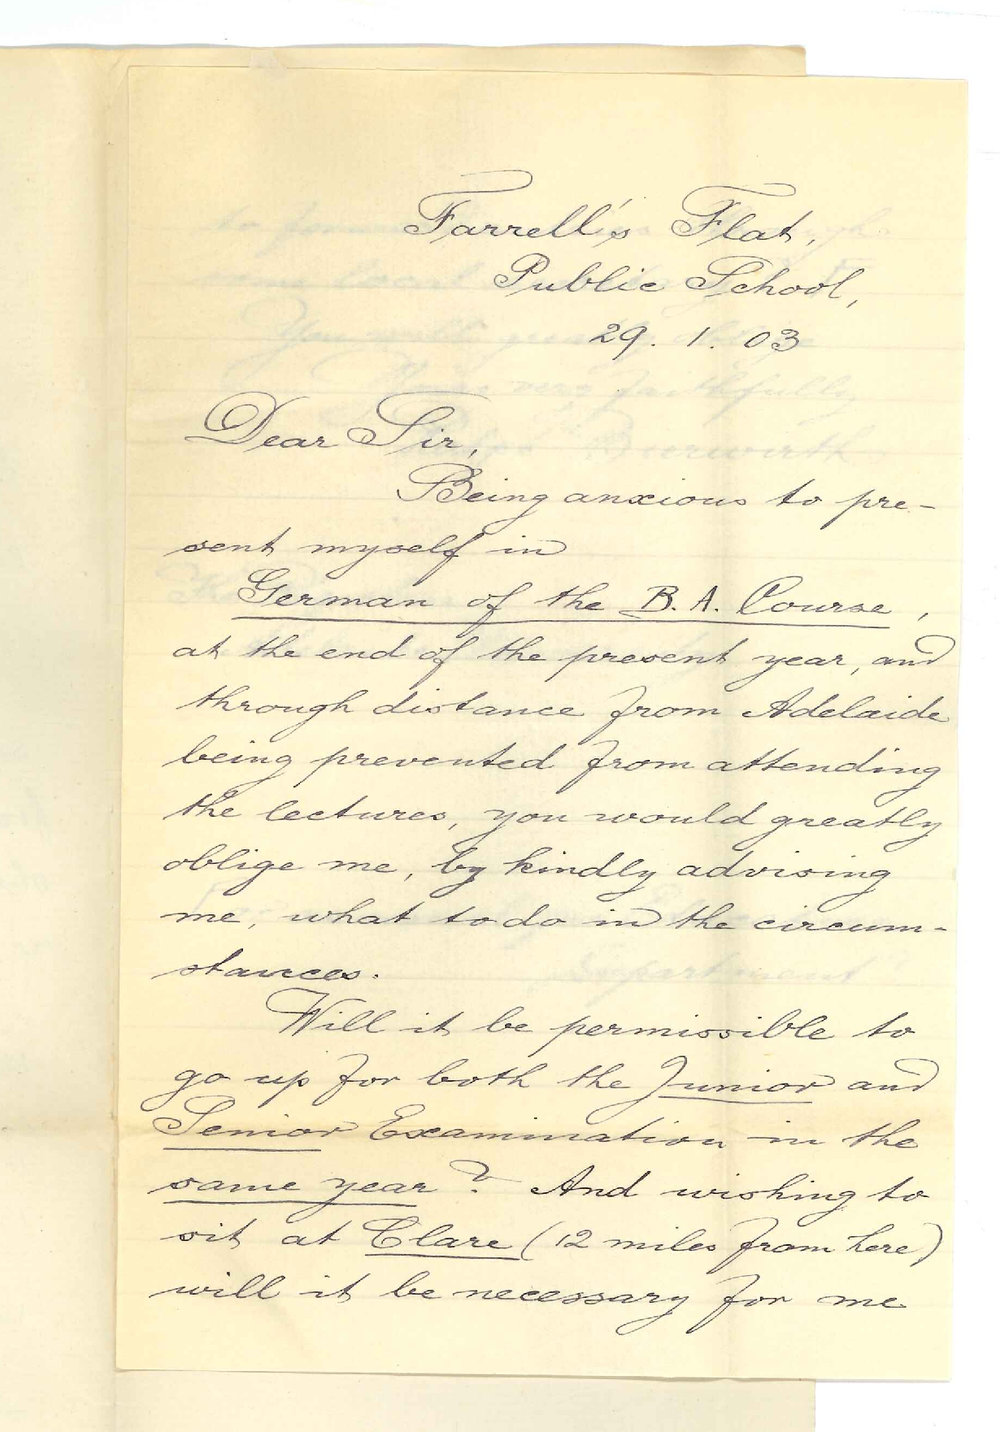 Farrell's Flat,
Public School,
29. 1. 03
Dear Sir,
Being anxious to pre-
sent myself in
German of the B. A. Course,
at the end of the present year, and
through distance from Adelaide
being prevented from attending
the lectures, you would greatly
oblige me, by kindly advising
me, what to do in the circum-
stances.
Will it be permissible to
go up for both the Junior and
Senior Examination in the
same year? And wishing to
sit at Clare (12 miles from here)
will it be necessary for me